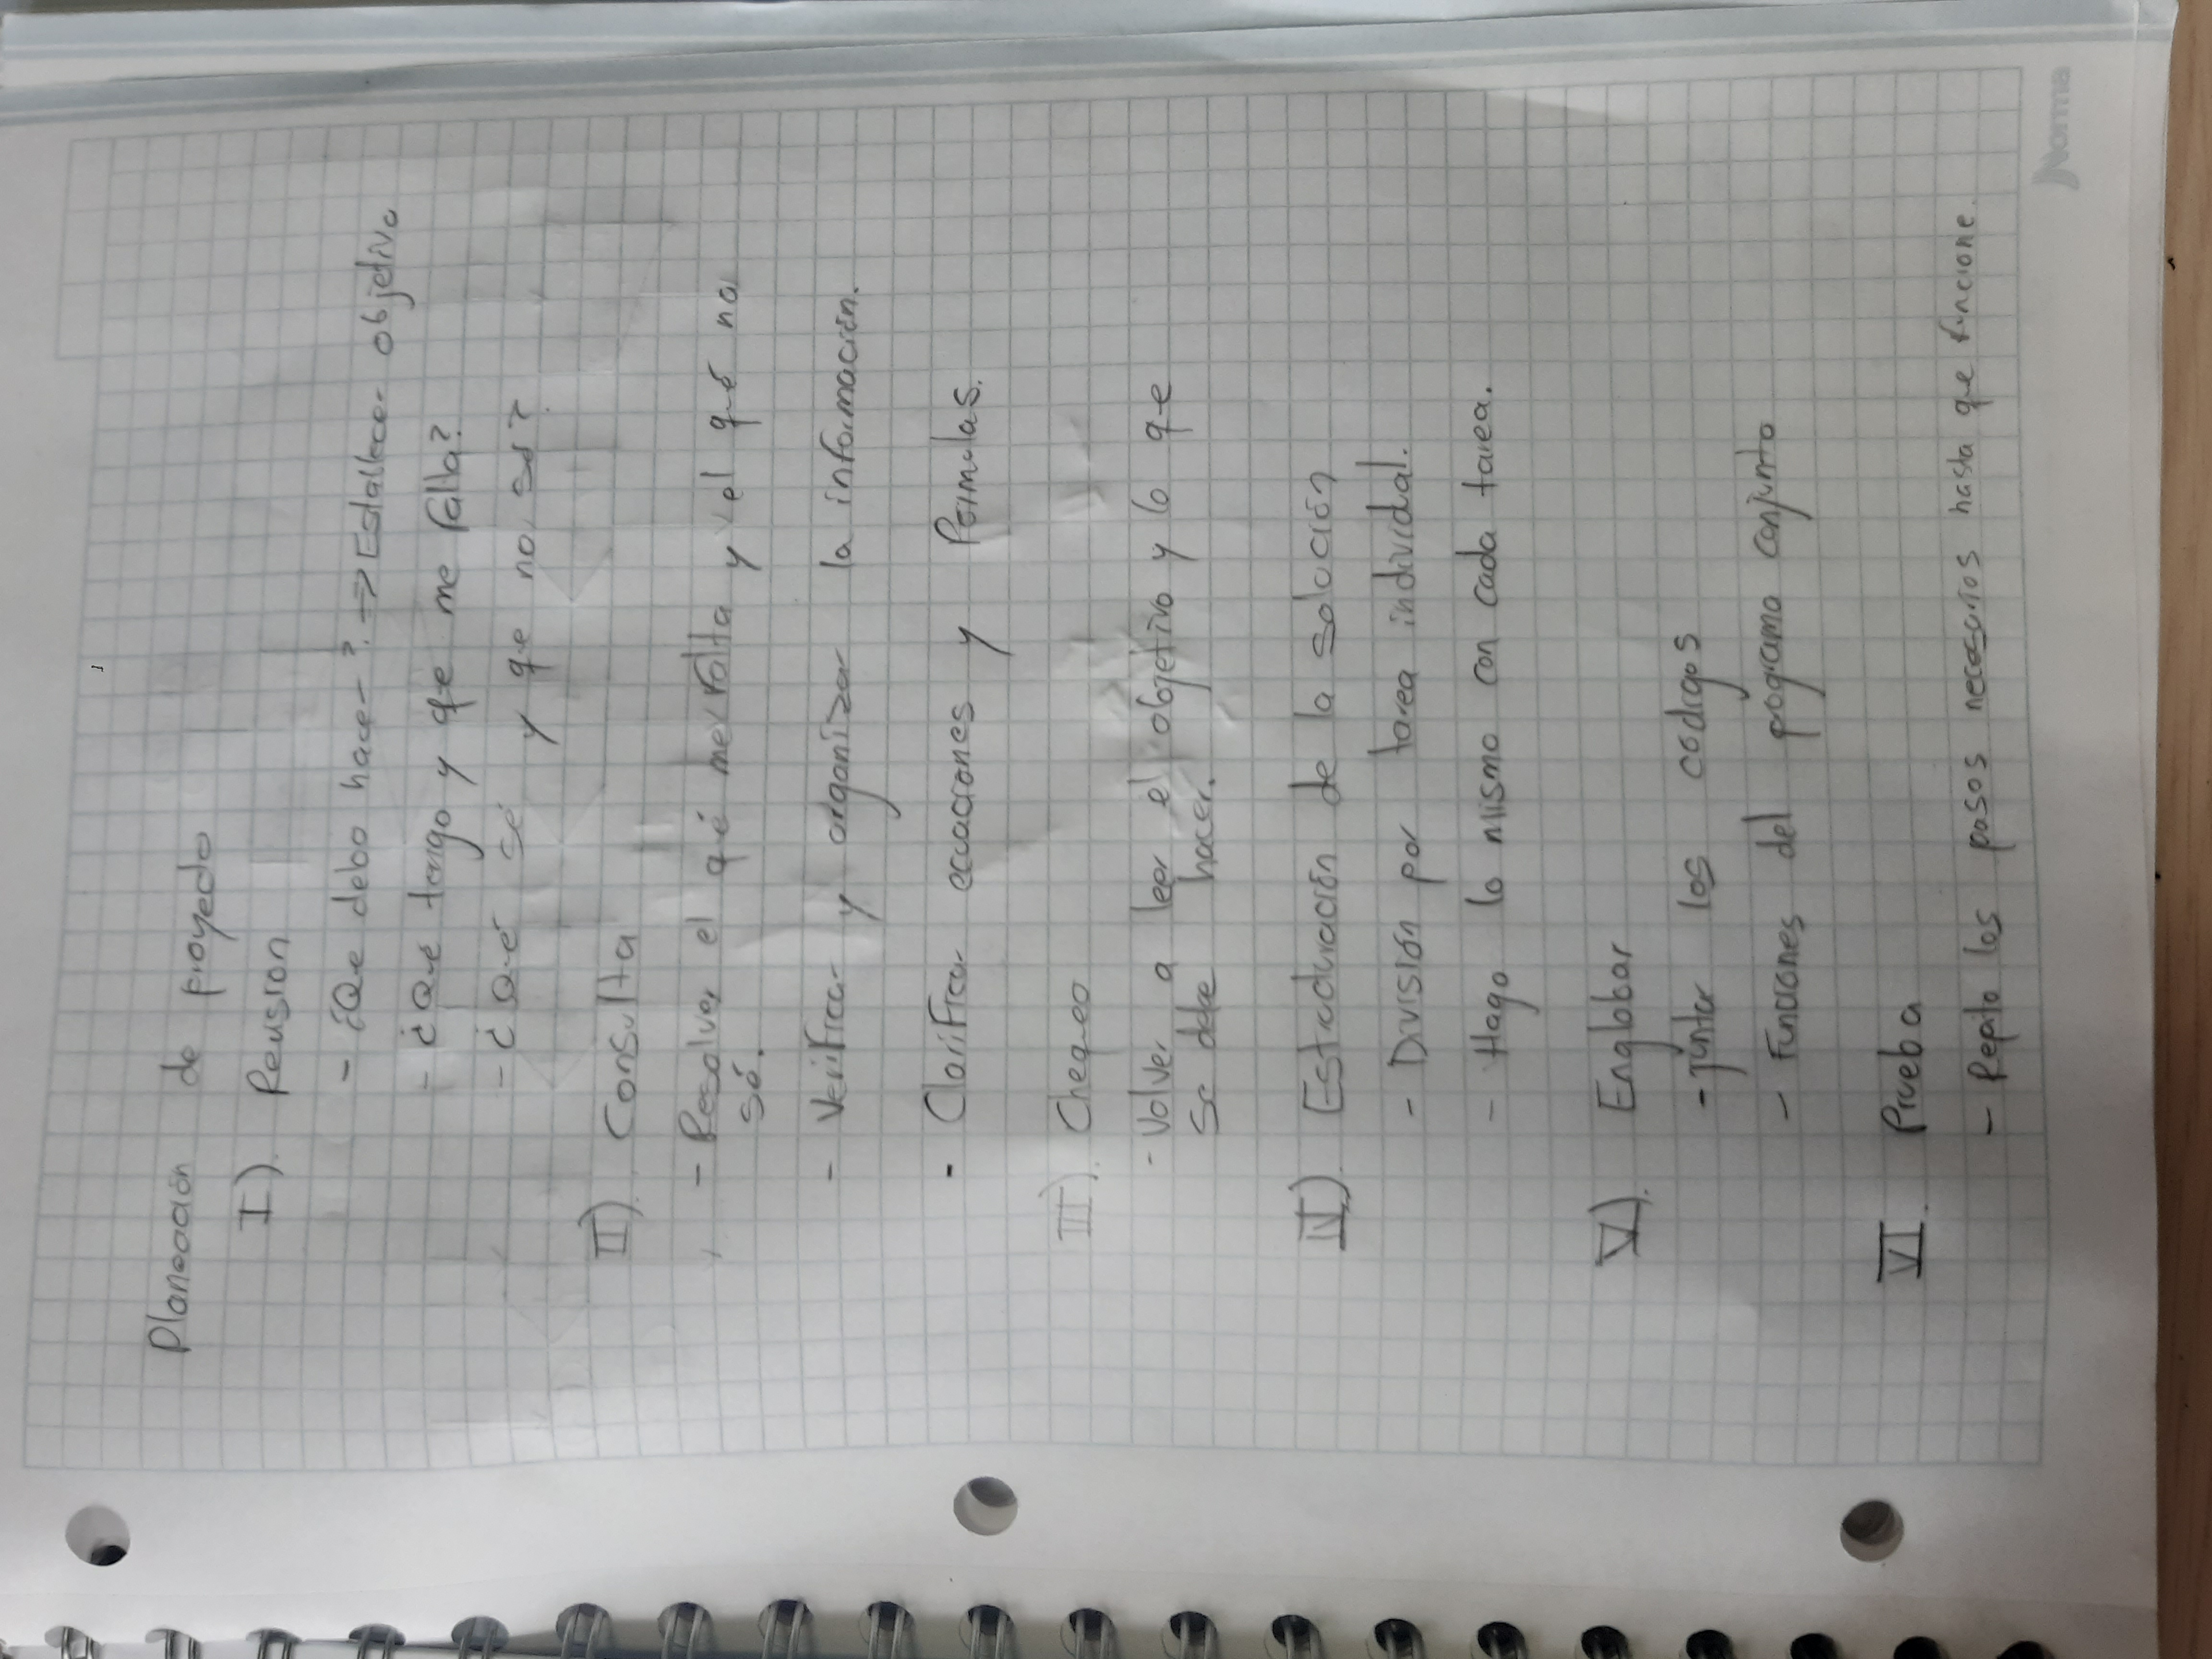 1
Planeación de proyecto
I). Revision
- ¿Que debo hacer? => Establecer objetivo
- ¿Qué tengo y que me falta?
- ¿Qué sé y que no sé?
II). Consulta
- Resolver el qué me falta y el qué no
sé.
- Verificar y organizar la información.
- Clarificar ecuaciones y formulas.
III). Chequeo
- Volver a leer el objetivo y lo que
se debe hacer.
IV). Estructuración de la solución
- División por tarea individual.
- Hago lo mismo con cada tarea.
V). Englobar
- juntar los codigos
- Funciones del programa conjunto
VI. Prueba
- Repito los pasos necesarios hasta que funcione.
Norma